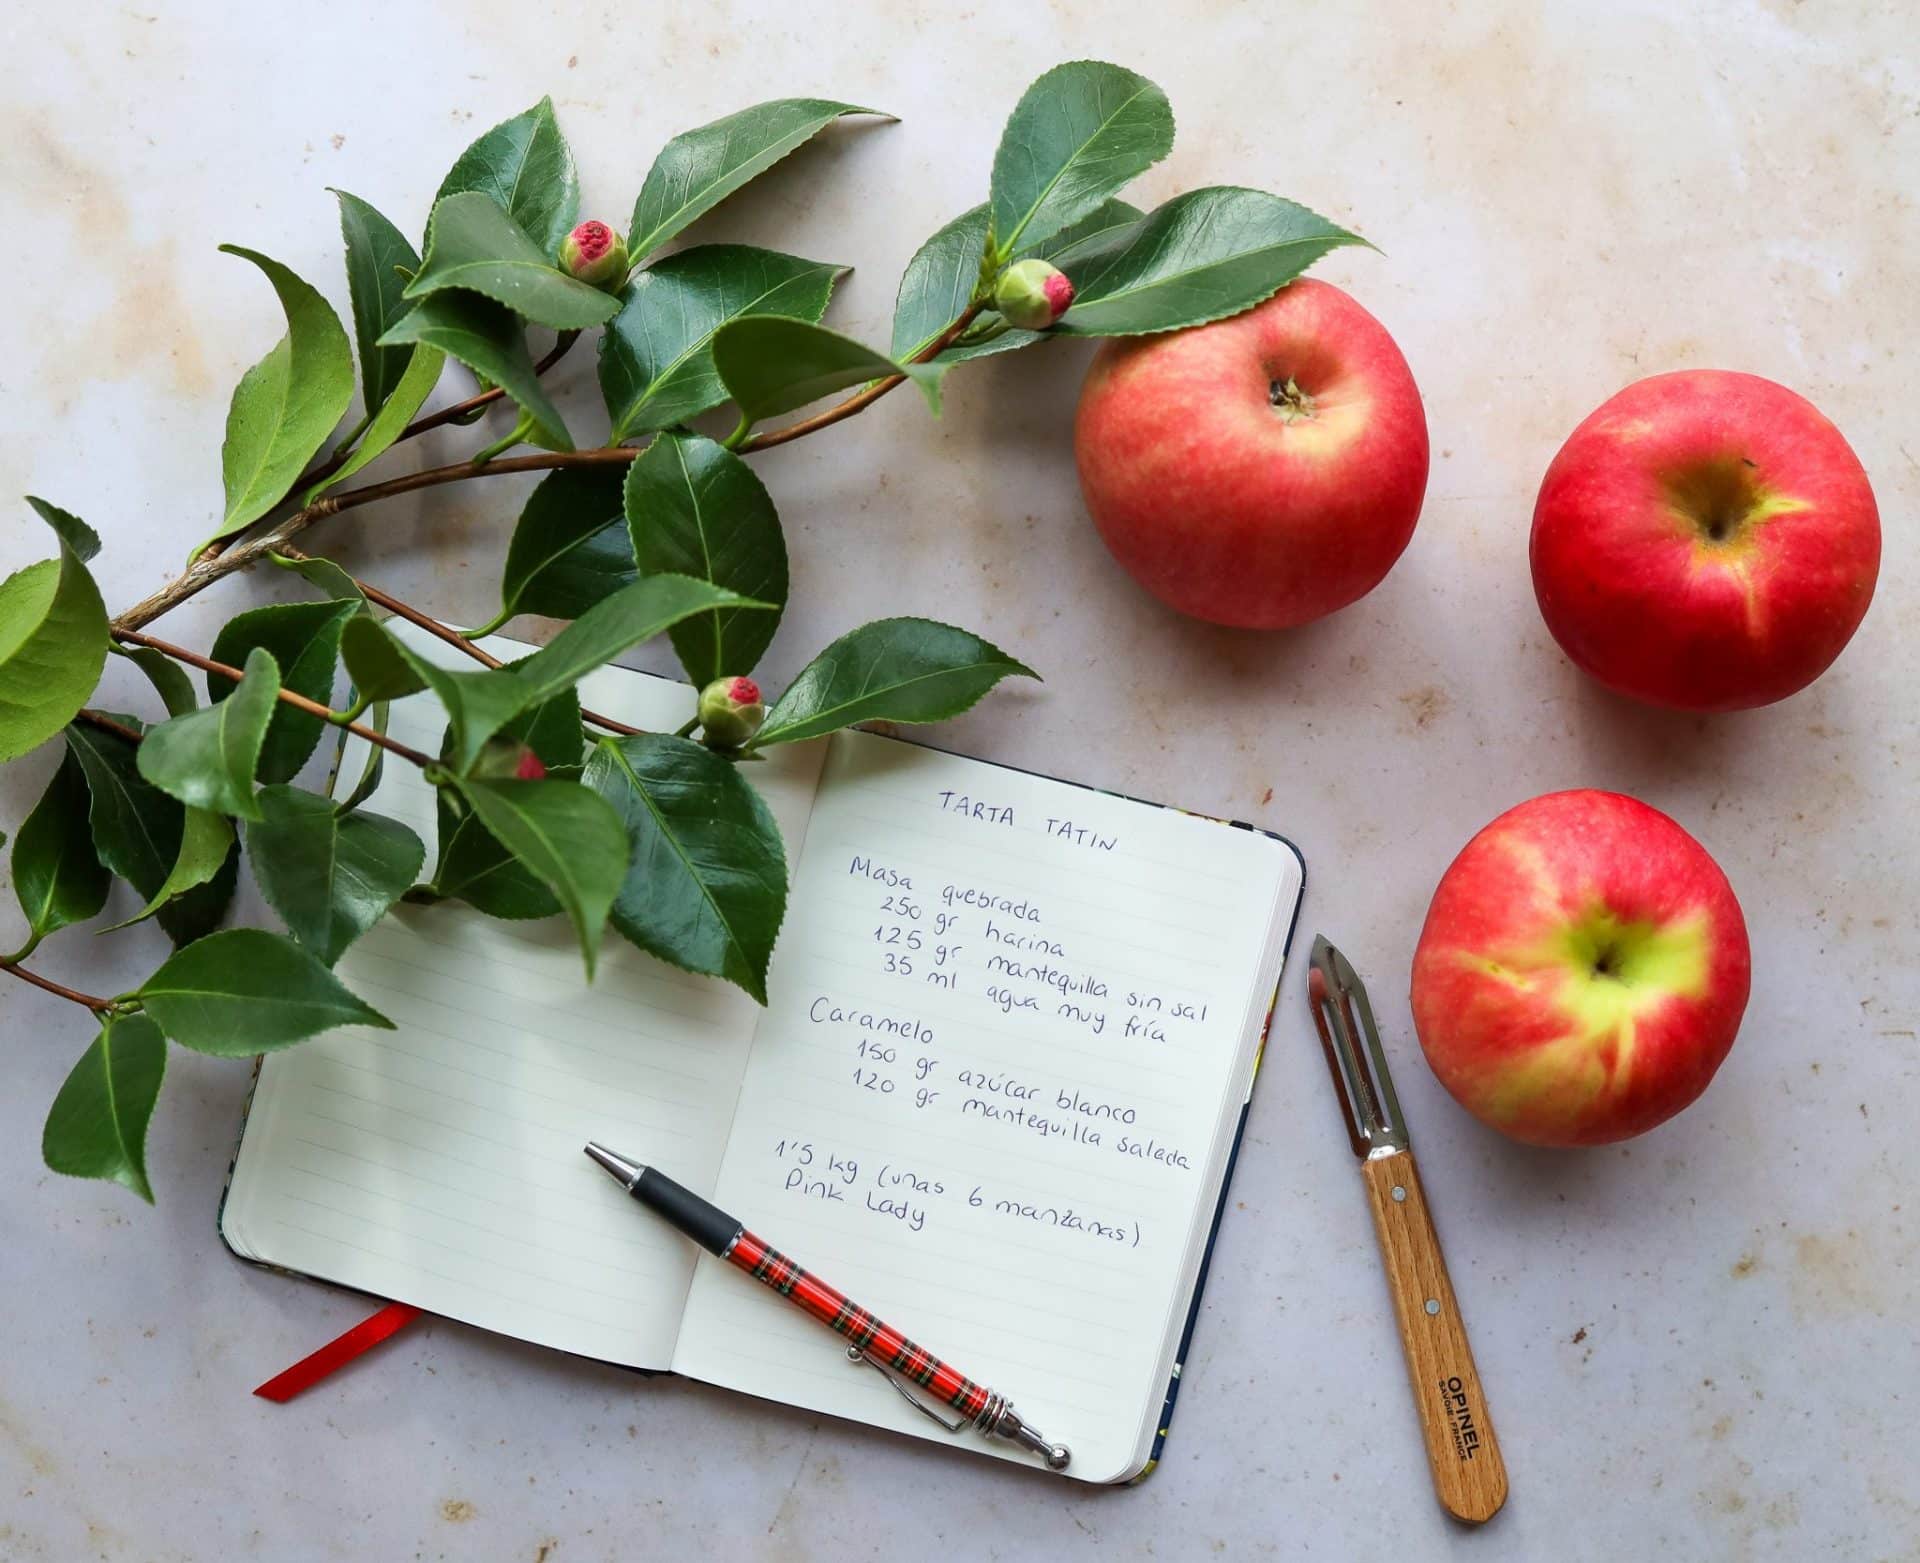 TARTA TATIN
Masa quebrada
250 gr harina
125 gr mantequilla sin sal
35 ml agua muy fría
Caramelo
150 gr azúcar blanco
120 gr mantequilla salada
1'5 kg (unas 6 manzanas)
Pink Lady
OPINEL
SAVOIE FRANCE